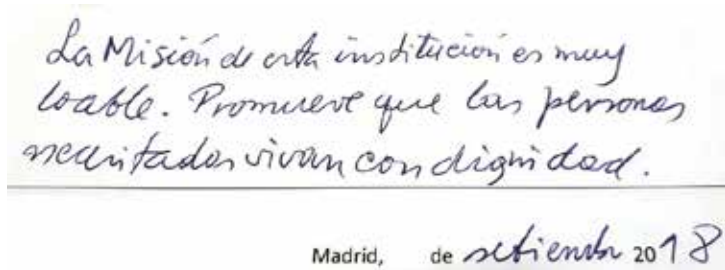 La Misión de esta institución es muy
loable. Promueve que las personas
necesitadas vivan con dignidad.
Madrid, de setiembre 2018